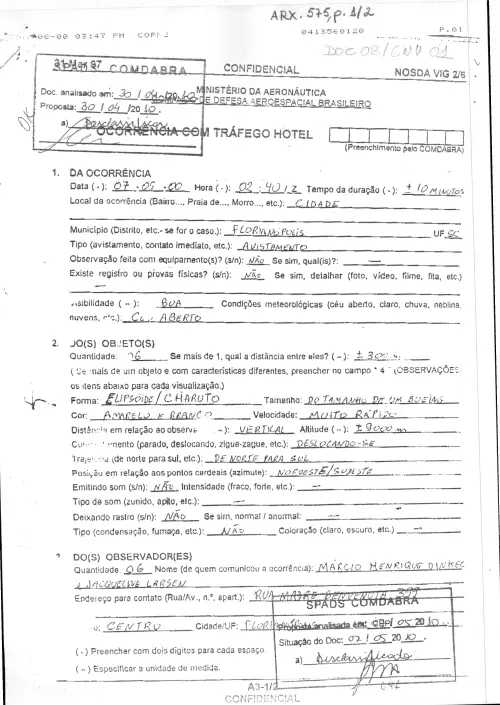 ARX. 575, p. 1/2
08-00 03:47 PM COPI 2 0413569120 P.01
DOC 08/CND 01
31 Mar 97
SPADS COMDABRA CONFIDENCIAL NOSDA VIG 2/6
Doc. analisado em: 30 / 04 /20 10 MINISTÉRIO DA AERONÁUTICA
Proposta: 30 / 04 /20 10. DE DEFESA AEROESPACIAL BRASILEIRO
a) Desclassificar
OCORRÊNCIA COM TRÁFEGO HOTEL
(Preenchimento pelo COMDABRA)
1. DA OCORRÊNCIA
Data ( - ): 07 - 05 - 00 Hora ( - ): 02 : 40 / Z Tempo da duração ( - ): ± 10 MINUTOS
Local da ocorrência (Bairro..., Praia de..., Morro..., etc.): CIDADE
Município (Distrito, etc.- se for o caso.): FLORIANÓPOLIS UF SC
Tipo (avistamento, contato imediato, etc.): AVISTAMENTO
Observação feita com equipamento(s)? (s/n): NÃO Se sim, qual(is)?: —
Existe registro ou provas físicas? (s/n): NÃO Se sim, detalhar (foto, vídeo, filme, fita, etc.)
—
sibilidade ( -- ): BOA Condições meteorológicas (céu aberto, claro, chuva, neblina,
nuvens, etc.): CÉU ABERTO
2. DO(S) OBJETO(S)
Quantidade: 06 Se mais de 1, qual a distância entre eles? ( -- ): ± 300 m
( Se mais de um objeto e com características diferentes, preencher no campo " 4 " (OBSERVAÇÕES
os itens abaixo para cada visualização.)
Forma: ELIPSÓIDE / CHARUTO Tamanho: DO TAMANHO DE UM BOEING
Cor: AMARELO E BRANCO Velocidade: MUITO RÁPIDO
Distância em relação ao observ -- ): VERTICAL Altitude ( -- ): ± 9000 m
mento (parado, deslocando, zigue-zague, etc.): DESLOCANDO-SE
Traje (de norte para sul, etc.): DE NORTE PARA SUL
Posição em relação aos pontos cardeais (azimute): NOROESTE/SUDESTE
Emitindo som (s/n): NÃO Intensidade (fraco, forte, etc.): —
Tipo de som (zunido, apito, etc.): —
Deixando rastro (s/n): NÃO Se sim, normal / anormal: —
Tipo (condensação, fumaça, etc.): NÃO Coloração (claro, escuro, etc.) —
DO(S) OBSERVADOR(ES)
Quantidade: 06 Nome (de quem comunicou a ocorrência): MÁRCIO HENRIQUE
JACQUELINE LARSEN
Endereço para contato (Rua/Av., n.º, apart.): RUA MADRE BENVENUTA
CENTRO Cidade/UF:
SPADS COMDABRA
Proposta analisada em: 05 20 10
Situação do Doc: 02 / 05 20 10.
a) Desclassificado
( - ) Preencher com dois dígitos para cada espaço.
( -- ) Especificar a unidade de medida.
A3-1/2
CONFIDENCIAL